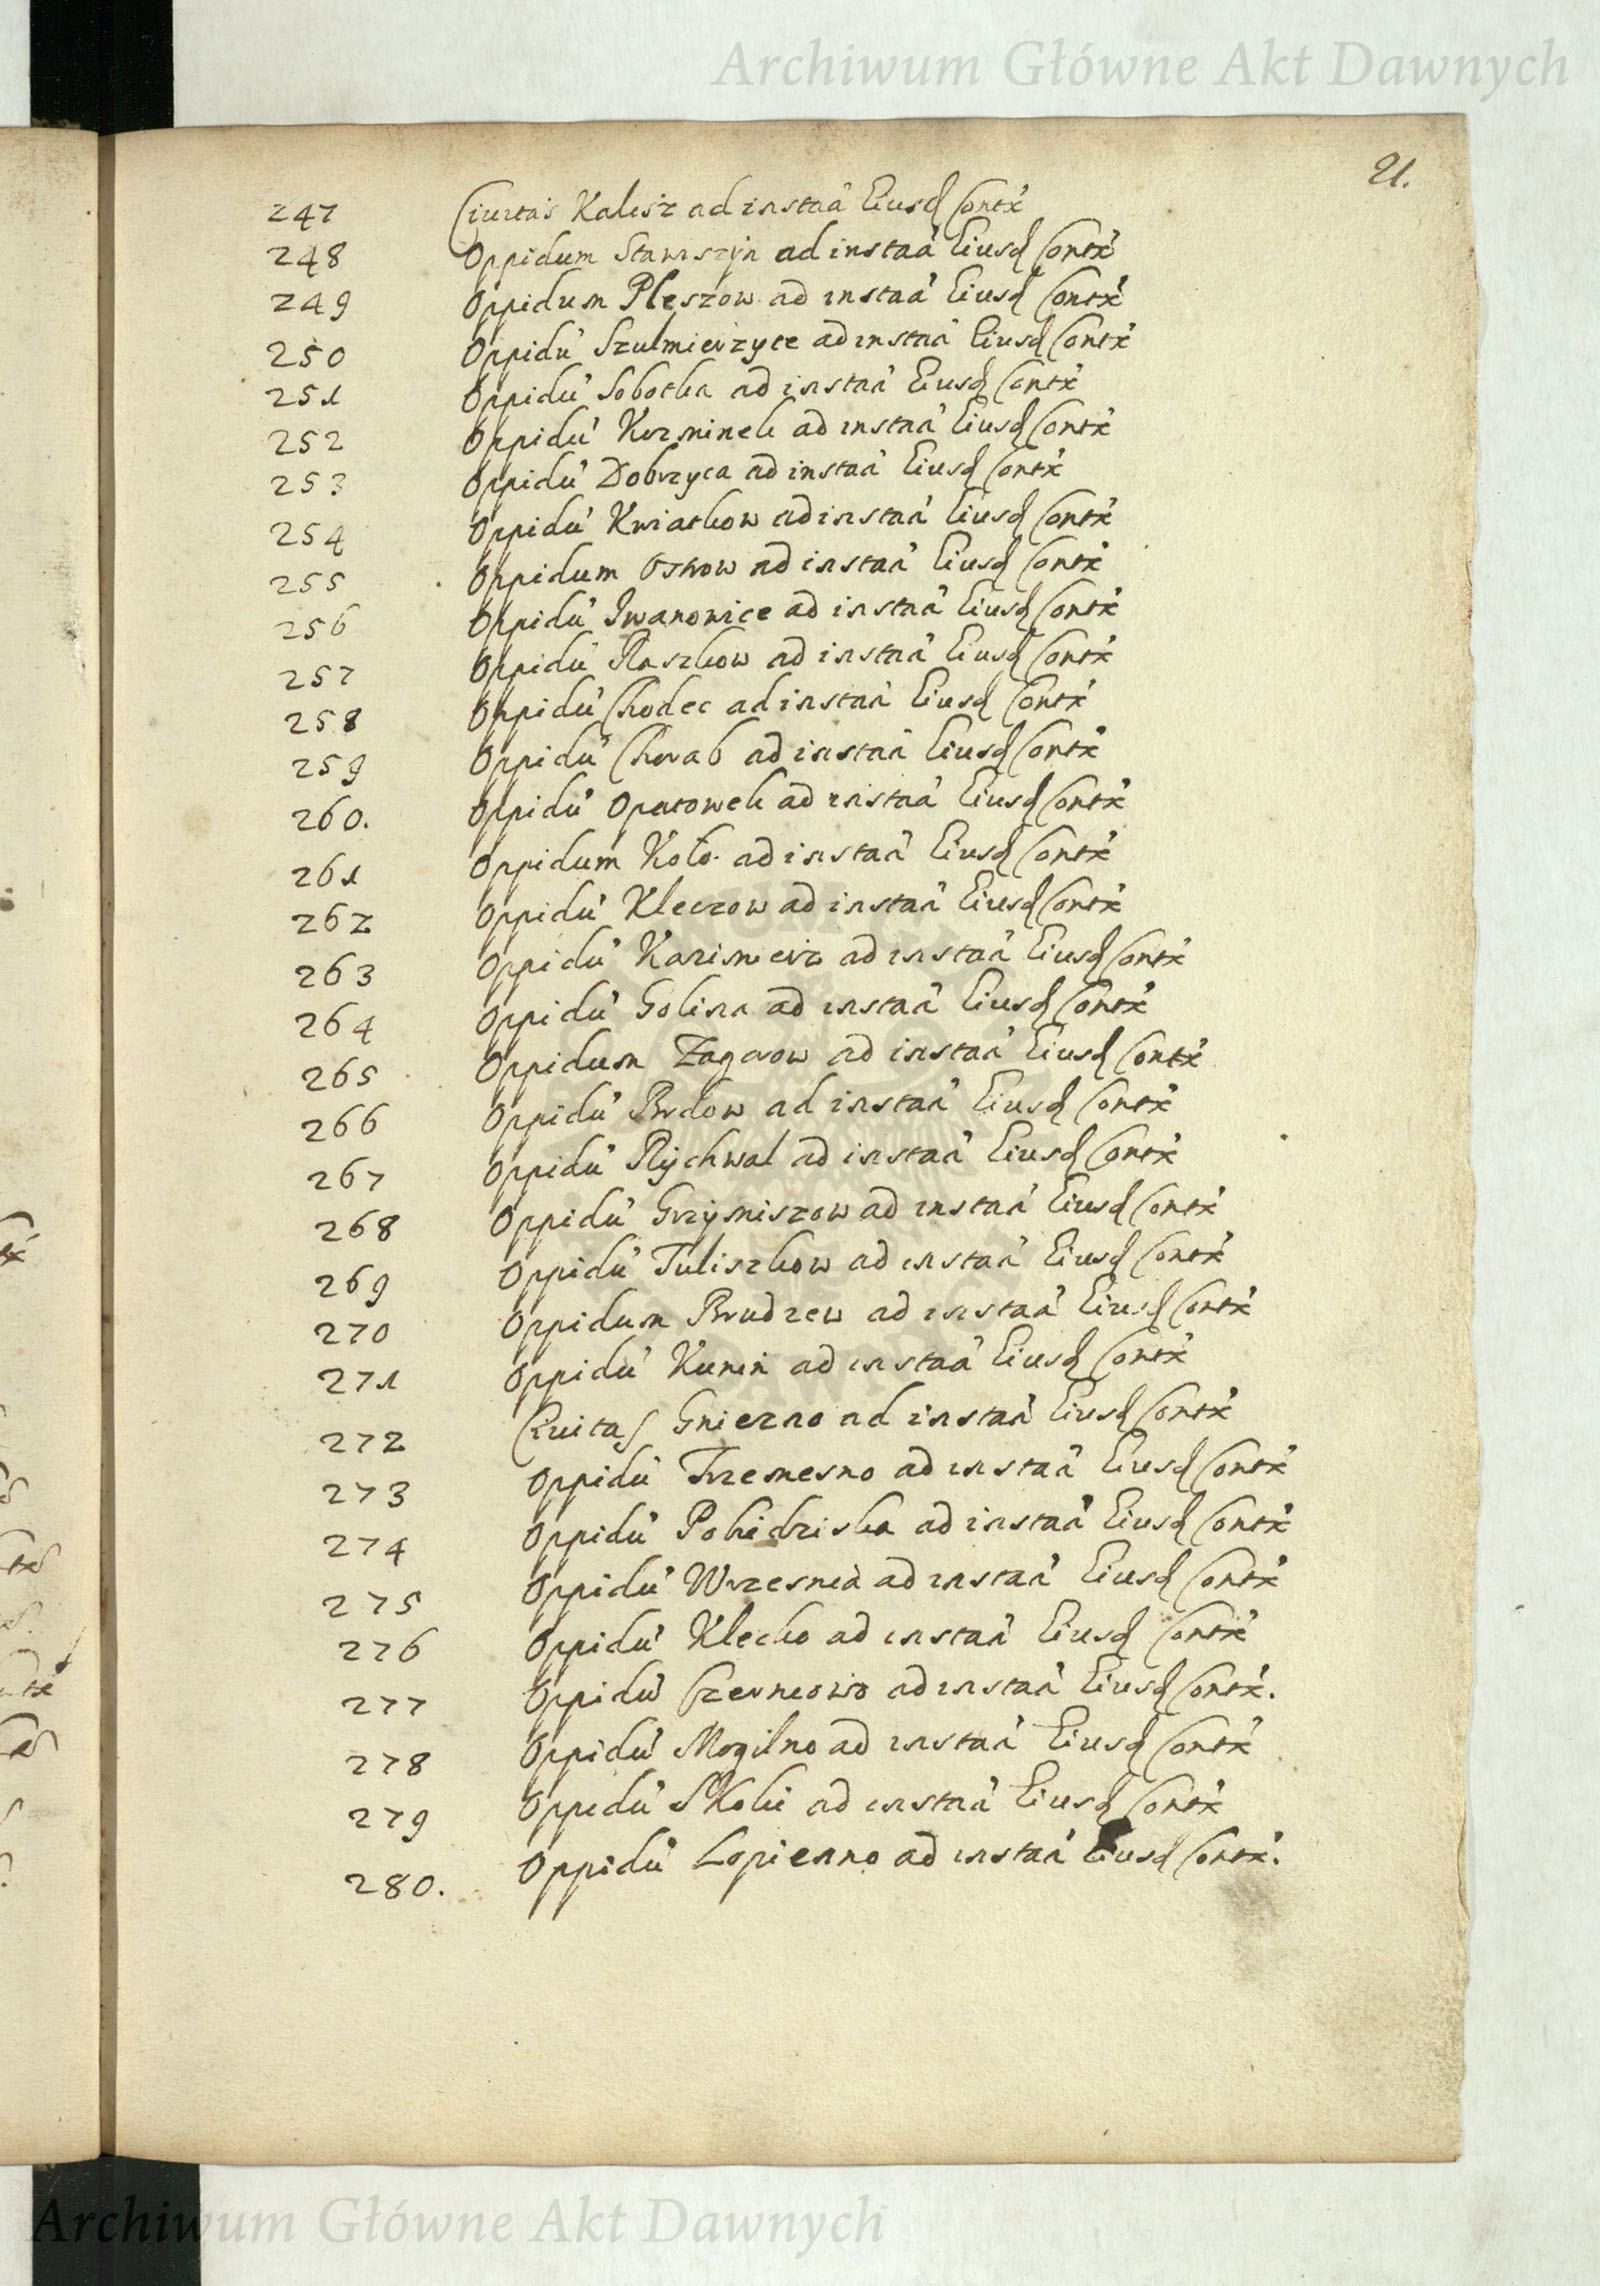 Archiwum Główne Akt Dawnych
21.
247 Ciuitas Kalisz ad instaã Eiusd Contx
248 Oppidum Stawiszyn ad instaã Eiusd Contx
249 Oppidum Pleszow ad instaã Eiusd Contx
250 Oppidũ Szulmierzyce ad instaã Eiusd Contx
251 Oppidũ Sobotka ad instaã Eiusd Contx
252 Oppidũ Kozminek ad instaã Eiusd Contx
253 Oppidũ Dobrzyca ad instaã Eiusd Contx
254 Oppidũ Kwiatkow ad instaã Eiusd Contx
255 Oppidum Ostrow ad instaã Eiusd Contx
256 Oppidũ Iwanowice ad instaã Eiusd Contx
257 Oppidũ Raszkow ad instaã Eiusd Contx
258 Oppidũ Chodec ad instaã Eiusd Contx
259 Oppidũ ad instaã Eiusd Contx
260. Oppidũ Opatowek ad instaã Eiusd Contx
261 Oppidum Koło ad instaã Eiusd Contx
262 Oppidũ Kleczow ad instaã Eiusd Contx
263 Oppidũ Kazimierz ad instaã Eiusd Contx
264 Oppidũ Golina ad instaã Eiusd Contx
265 Oppidum Zagorow ad instaã Eiusd Contx
266 Oppidũ Brdow ad instaã Eiusd Contx
267 Oppidũ Rychwal ad instaã Eiusd Contx
268 Oppidũ Grzymiszow ad instaã Eiusd Contx
269 Oppidũ Tuliszkow ad instaã Eiusd Contx
270 Oppidum Brudzew ad instaã Eiusd Contx
271 Oppidũ Kunin ad instaã Eiusd Contx
272 Ciuitas Gniezno ad instaã Eiusd Contx
273 Oppidũ Trzemesno ad instaã Eiusd Contx
274 Oppidũ Pobidziska ad instaã Eiusd Contx
275 Oppidũ Wrzesnia ad instaã Eiusd Contx
276 Oppidũ Klecko ad instaã Eiusd Contx
277 Oppidũ Czerniowo ad instaã Eiusd Contx.
278 Oppidũ Mogilno ad instaã Eiusd Contx
279 Oppidũ Skoki ad instaã Eiusd Contx
280. Oppidũ Lopienno ad instaã Eiusd Contx.
Archiwum Główne Akt Dawnych